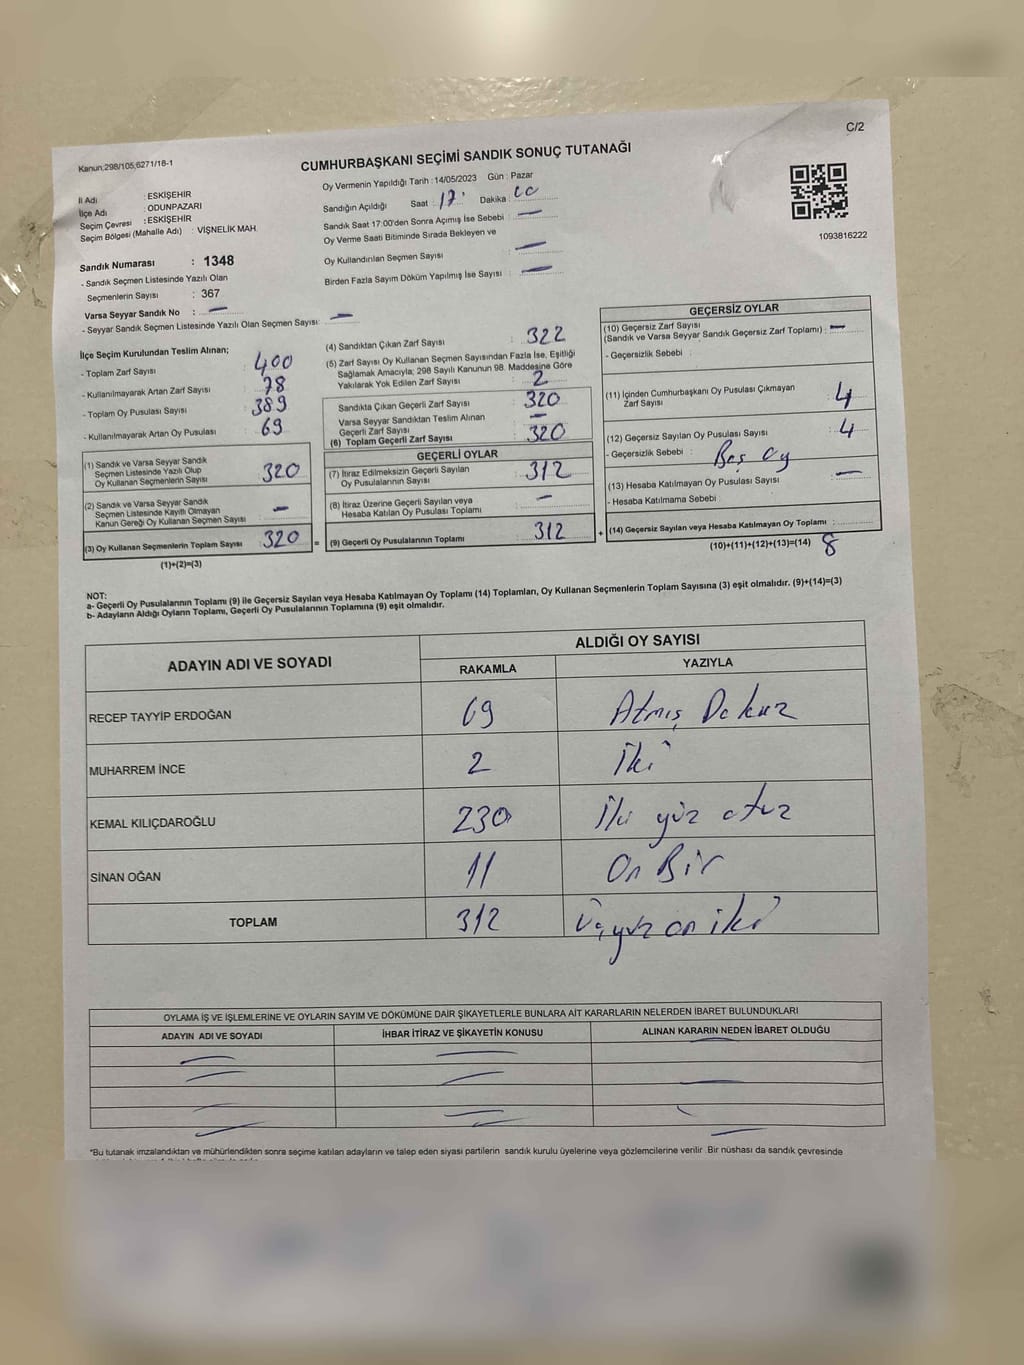 C/2
Kanun:298/105,6271/18-1
CUMHURBAŞKANI SEÇİMİ SANDIK SONUÇ TUTANAĞI
İl Adı : ESKİŞEHİR
İlçe Adı : ODUNPAZARI
Seçim Çevresi : ESKİŞEHİR
Seçim Bölgesi (Mahalle Adı) : VİŞNELİK MAH.
Sandık Numarası : 1348
- Sandık Seçmen Listesinde Yazılı Olan
Seçmenlerin Sayısı : 367
Varsa Seyyar Sandık No : —
- Seyyar Sandık Seçmen Listesinde Yazılı Olan Seçmen Sayısı: —
Oy Vermenin Yapıldığı Tarih : 14/05/2023 Gün : Pazar
Sandığın Açıldığı Saat : 17 Dakika : 00
Sandık Saat 17:00'den Sonra Açımış İse Sebebi : —
Oy Verme Saati Bitiminde Sırada Bekleyen ve
Oy Kullandırılan Seçmen Sayısı : —
Birden Fazla Sayım Döküm Yapılmış İse Sayısı : —
1093816222
İlçe Seçim Kurulundan Teslim Alınan;
- Toplam Zarf Sayısı : 400
- Kullanılmayarak Artan Zarf Sayısı : 78
- Toplam Oy Pusulası Sayısı : 389
- Kullanılmayarak Artan Oy Pusulası : 69
(1) Sandık ve Varsa Seyyar Sandık
Seçmen Listesinde Yazılı Olup
Oy Kullanan Seçmenlerin Sayısı : 320
(2) Sandık ve Varsa Seyyar Sandık
Seçmen Listesinde Kayıtlı Olmayan
Kanun Gereği Oy Kullanan Seçmen Sayısı : —
(3) Oy Kullanan Seçmenlerin Toplam Sayısı : 320 =
(1)+(2)=(3)
(4) Sandıktan Çıkan Zarf Sayısı : 322
(5) Zarf Sayısı Oy Kullanan Seçmen Sayısından Fazla İse, Eşitliği
Sağlamak Amacıyla; 298 Sayılı Kanunun 98. Maddesine Göre
Yakılarak Yok Edilen Zarf Sayısı : 2
Sandıkta Çıkan Geçerli Zarf Sayısı : 320
Varsa Seyyar Sandıktan Teslim Alınan
Geçerli Zarf Sayısı : —
(6) Toplam Geçerli Zarf Sayısı : 320
GEÇERLİ OYLAR
(7) İtiraz Edilmeksizin Geçerli Sayılan
Oy Pusulasının Sayısı : 312
(8) İtiraz Üzerine Geçerli Sayılan veya
Hesaba Katılan Oy Pusulası Toplamı : —
(9) Geçerli Oy Pusulalarının Toplamı : 312 +
GEÇERSİZ OYLAR
(10) Geçersiz Zarf Sayısı
(Sandık ve Varsa Seyyar Sandık Geçersiz Zarf Toplamı) : —
- Geçersizlik Sebebi :
(11) İçinden Cumhurbaşkanı Oy Pusulası Çıkmayan
Zarf Sayısı : 4
(12) Geçersiz Sayılan Oy Pusulası Sayısı : 4
- Geçersizlik Sebebi : Boş oy
(13) Hesaba Katılmayan Oy Pusulası Sayısı : —
- Hesaba Katılmama Sebebi :
(14) Geçersiz Sayılan veya Hesaba Katılmayan Oy Toplamı :
(10)+(11)+(12)+(13)=(14) 8
NOT:
a- Geçerli Oy Pusulalarının Toplamı (9) ile Geçersiz Sayılan veya Hesaba Katılmayan Oy Toplamı (14) Toplamları, Oy Kullanan Seçmenlerin Toplam Sayısına (3) eşit olmalıdır. (9)+(14)=(3)
b- Adayların Aldığı Oyların Toplamı, Geçerli Oy Pusulalarının Toplamına (9) eşit olmalıdır.
ADAYIN ADI VE SOYADI ALDIĞI OY SAYISI
RAKAMLA YAZIYLA
RECEP TAYYİP ERDOĞAN 69 Atmış Dokuz
MUHARREM İNCE 2 İki
KEMAL KILIÇDAROĞLU 230 İki yüz otuz
SİNAN OĞAN 11 On Bir
TOPLAM 312 Üçyüz on iki
OYLAMA İŞ VE İŞLEMLERİNE VE OYLARIN SAYIM VE DÖKÜMÜNE DAİR ŞİKAYETLERLE BUNLARA AİT KARARLARIN NELERDEN İBARET BULUNDUKLARI
ADAYIN ADI VE SOYADI İHBAR İTİRAZ VE ŞİKAYETİN KONUSU ALINAN KARARIN NEDEN İBARET OLDUĞU
*Bu tutanak imzalandıktan ve mühürlendikten sonra seçime katılan adayların ve talep eden siyasi partilerin sandık kurulu üyelerine veya gözlemcilerine verilir .Bir nüshası da sandık çevresinde